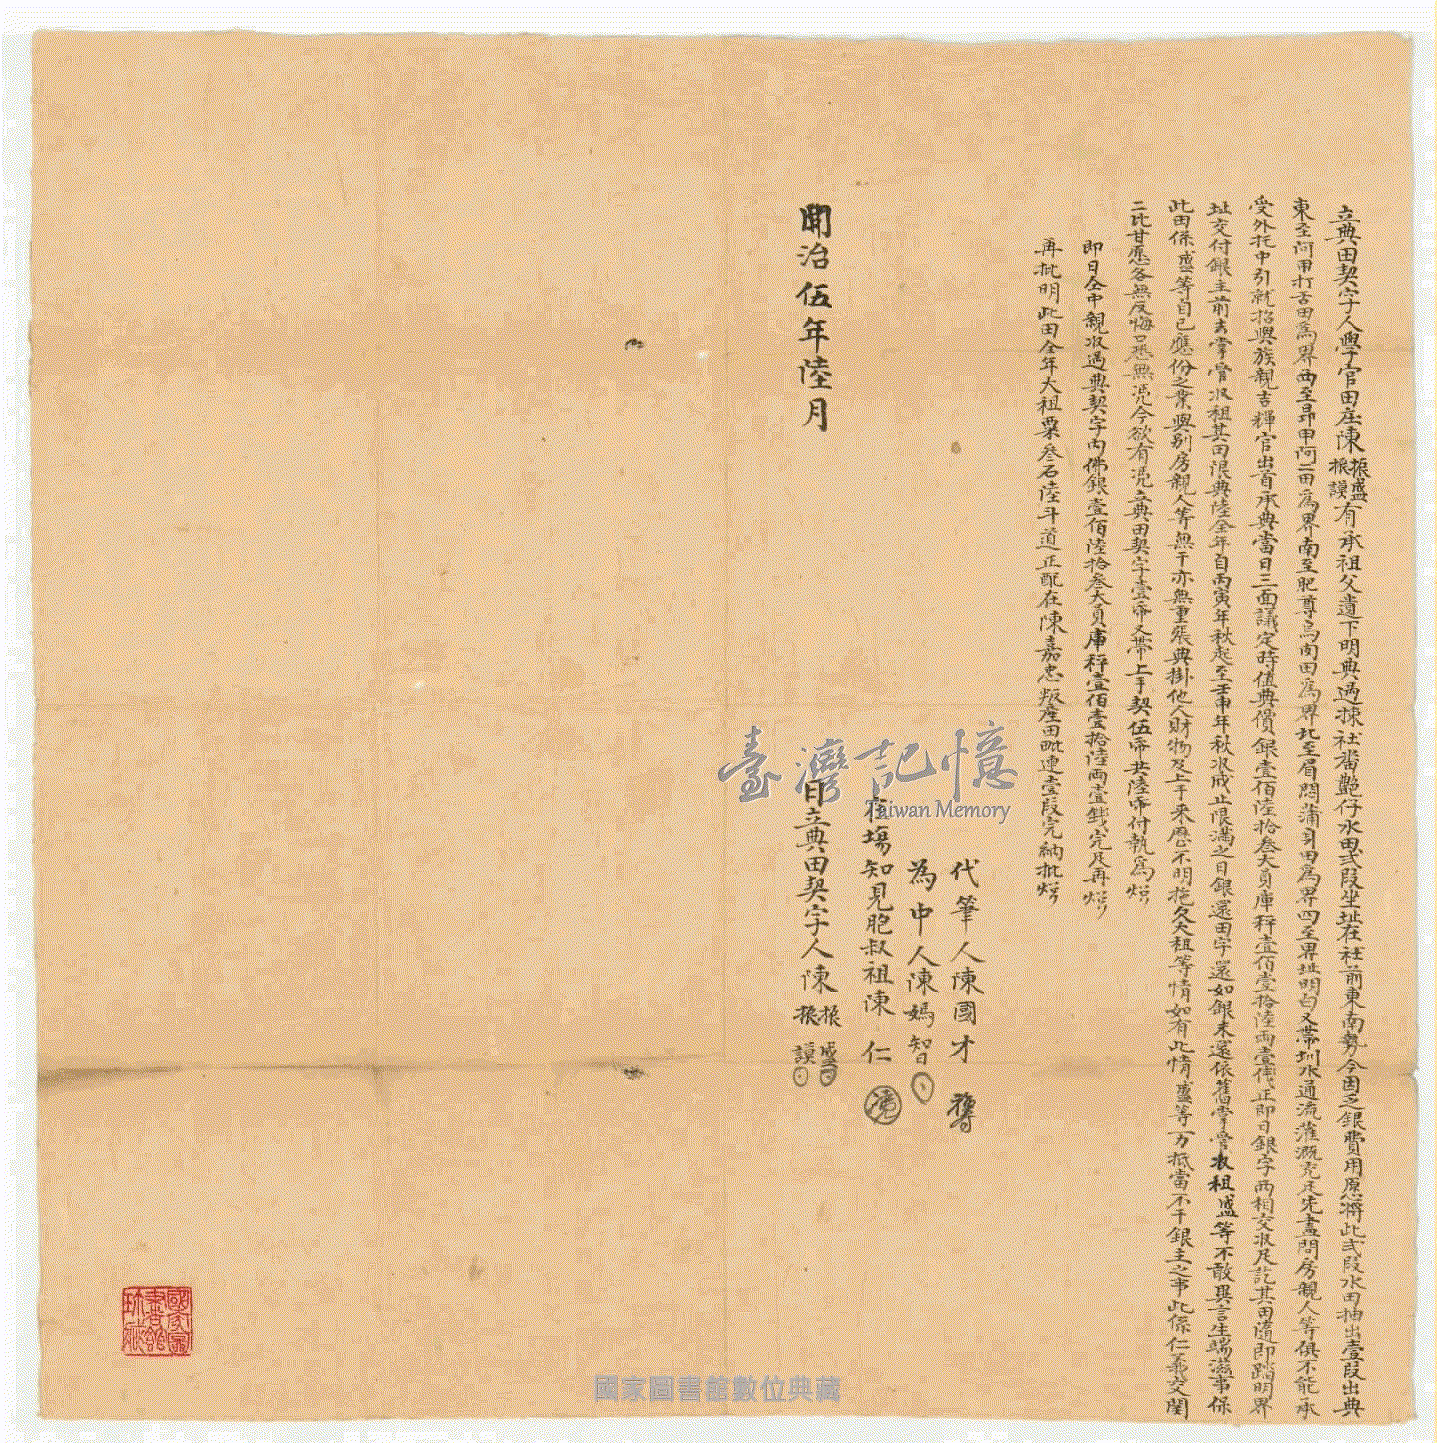 立典田契字人學官田庄陳振盛振謨有承祖父遺下明典過揀社番艷仔水田弍段坐址在社前東南勢今因乏銀費用愿將此弍段水田抽出壹段出典
東至阿甲打古田為界西至昴甲阿二田為界南至肥尊烏肉田為界北至眉悶蒲氏田為界四至界址明白又帶圳水通流灌溉充足先盡問房親人等俱不能承
受外托中引就招與族親吉輝官出首承典當日三面議定時值典價銀壹佰陸拾叁大員庫秤壹佰壹拾陸両壹錢正即日銀字両相交收足訖其田隨即踏明界
址交付銀主前去掌管收租其田限典陸全年自丙寅年秋起至壬申年秋收成止限滿之日銀還田字還如銀未還依舊掌管收租盛等不敢異言生端滋事保
此田係盛等自己應份之業與別房親人等無干亦無重張典掛他人財物及上手來歷不明拖欠大租等情如有此情盛等一力抵當不干銀主之事此係仁義交關
二比甘愿各無反悔口恐無憑今欲有憑立典田契字壹帋又帶上手契伍帋共陸帋付執為炤
即日仝中親收過典契字內佛銀壹佰陸拾叁大員庫秤壹佰壹拾陸両壹錢完足再炤
再批明此田全年大租粟叁石陸斗道正配在陳嘉忠叛產田毗連壹段完納批炤
代筆人陳國才
為中人陳媽智
在場知見胞叔祖陳仁
同治伍年陸月 日立典田契字人陳振盛振謨
臺灣記憶
Taiwan Memory
國家圖書館珍藏
國家圖書館數位典藏